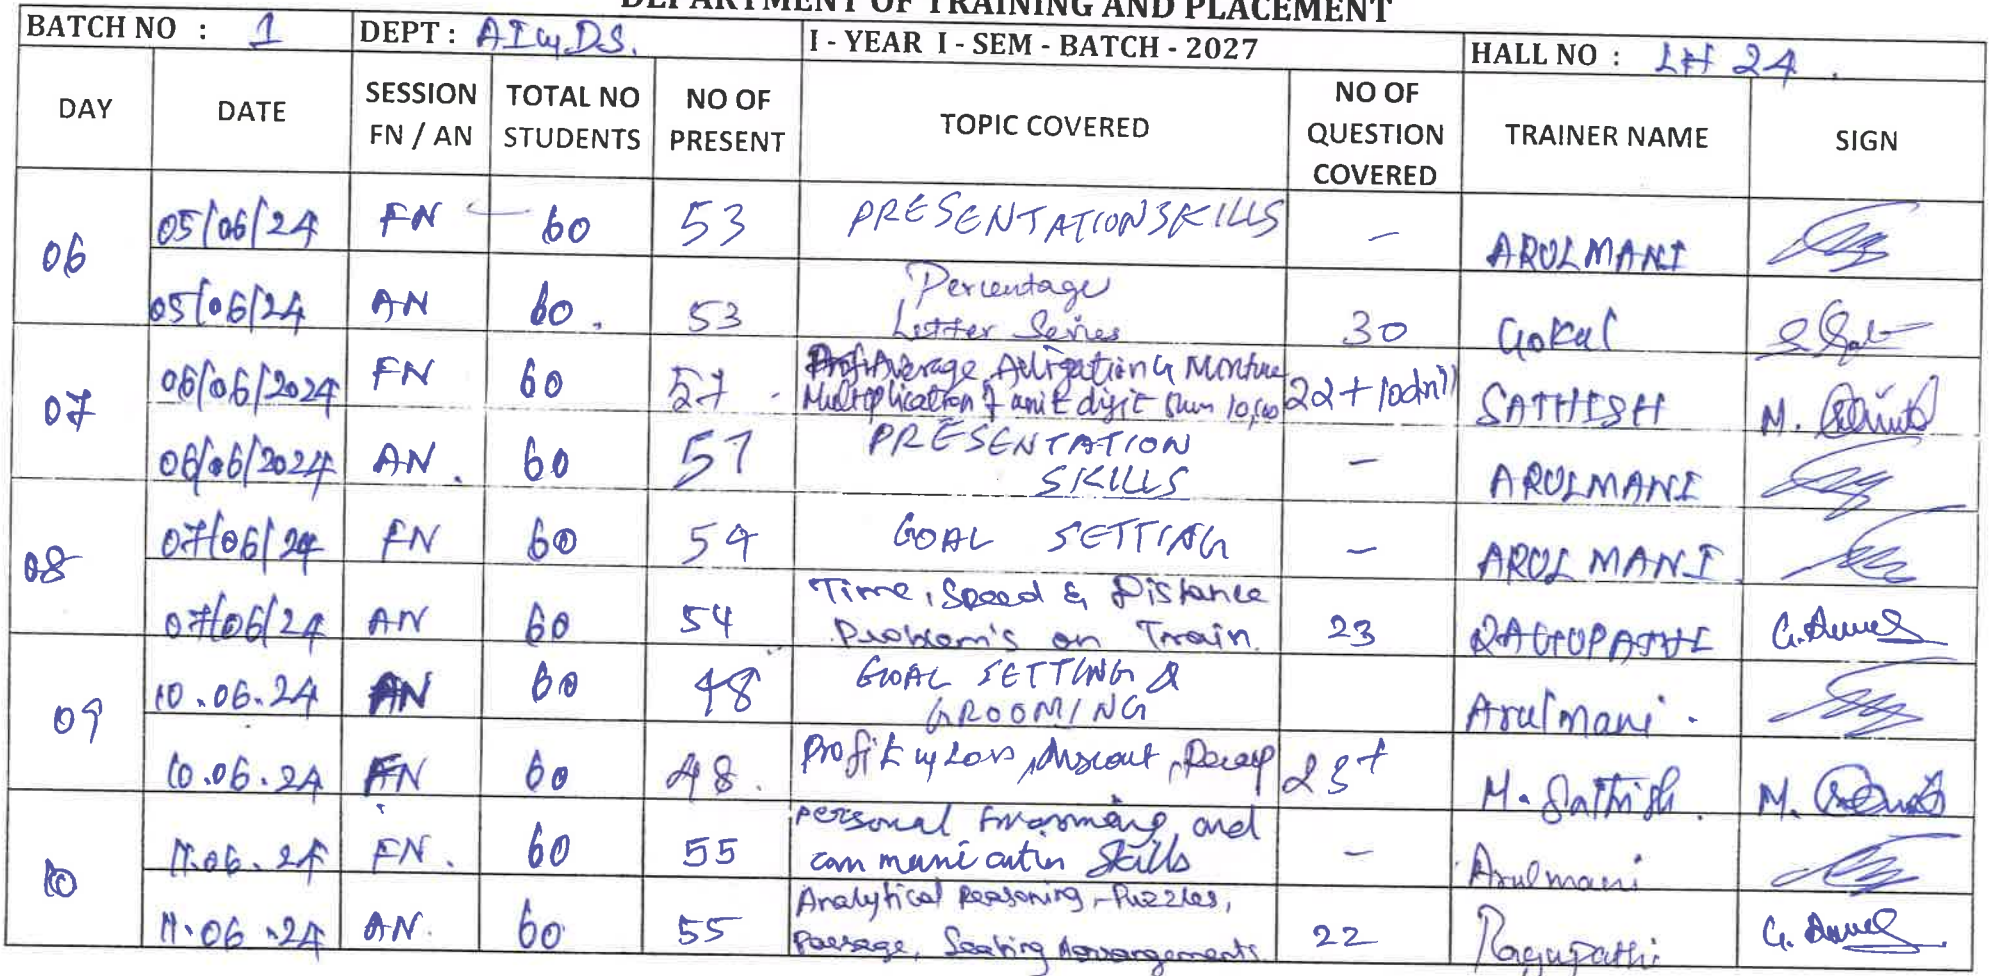 DEPARTMENT OF TRAINING AND PLACEMENT
BATCH NO : 1 DEPT : AI & DS. I - YEAR I - SEM - BATCH - 2027 HALL NO : LH 24 .
DAY DATE SESSION FN / AN TOTAL NO STUDENTS NO OF PRESENT TOPIC COVERED NO OF QUESTION COVERED TRAINER NAME SIGN
06 05/06/24 FN 60 53 PRESENTATION SKILLS - ARULMANI
05/06/24 AN 60 . 53 Percentage
Letter Series 30 Gokul
07 06/06/2024 FN 60 57 Average, Alligation & Mixture
Multiplication unit digit 10,000 22 + 10 drill SATHISH M.
06/06/2024 AN . 60 57 PRESENTATION
SKILLS - ARULMANI
08 07/06/24 FN 60 54 GOAL SETTING - ARULMANI
07/06/24 AN 60 54 Time, Speed & Distance
Problem's on Train. 23 RAGUPATHI G.
09 10.06.24 AN 60 48 GOAL SETTING &
GROOMING Arulmani .
10.06.24 FN 60 48 . Profit & Loss, Discout, 25+ M. Sathish . M.
10 11.06.24 FN . 60 55 personal and
communication Skills - Arulmani
11.06.24 AN. 60 55 Analytical Reasoning, - Puzzles,
Passage, Seating Arrangements 22 Ragupathi G.